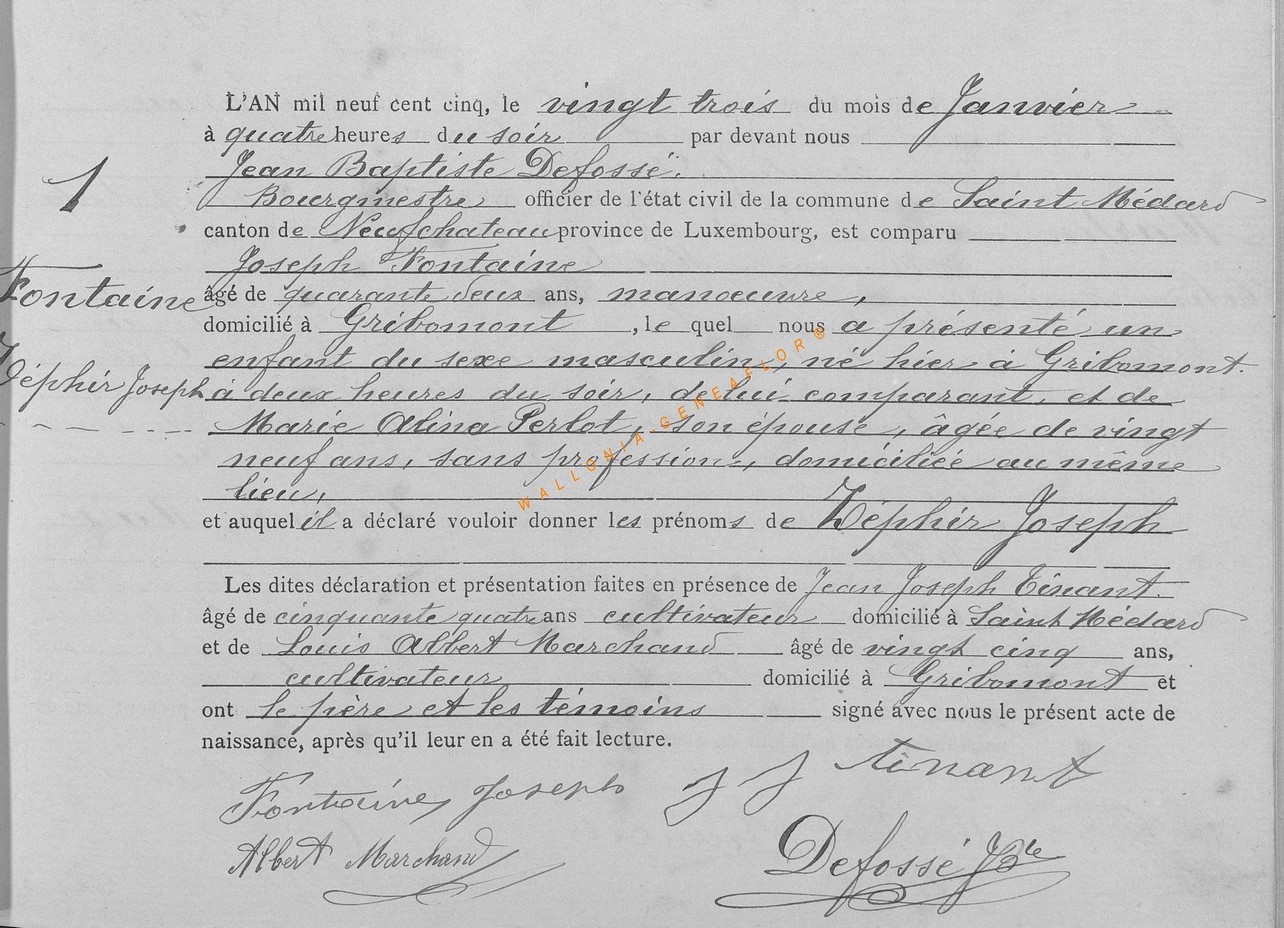 L'AN mil neuf cent cinq, le vingt trois du mois de Janvier
à quatre heures du soir par devant nous
Jean Baptiste Defossé.
1
Bourgmestre officier de l'état civil de la commune de Saint Médard
canton de Neufchateau province de Luxembourg, est comparu
Joseph Fontaine
Fontaine
âgé de quarante deux ans, manœuvre,
domicilié à Gribomont, le quel nous a présenté un
enfant du sexe masculin, né hier à Gribomont.
Zéphir Joseph
à deux heures du soir, de lui comparant, et de
Marie Alina Perlot, son épouse, âgée de vingt
neuf ans, sans profession, domiciliée au même
lieu,
et auquel il a déclaré vouloir donner les prénoms de Zéphir Joseph
Les dites déclaration et présentation faites en présence de Jean Joseph Tinant.
âgé de cinquante quatre ans cultivateur domicilié à Saint Médard
et de Louis Albert Marchand âgé de vingt cinq ans,
cultivateur domicilié à Gribomont et
ont le père et les témoins signé avec nous le présent acte de
naissance, après qu'il leur en a été fait lecture.
Fontaine Joseph J J Tinant
Albert Marchand Defossé JBte
WALLONIA-GENEAFLOR®